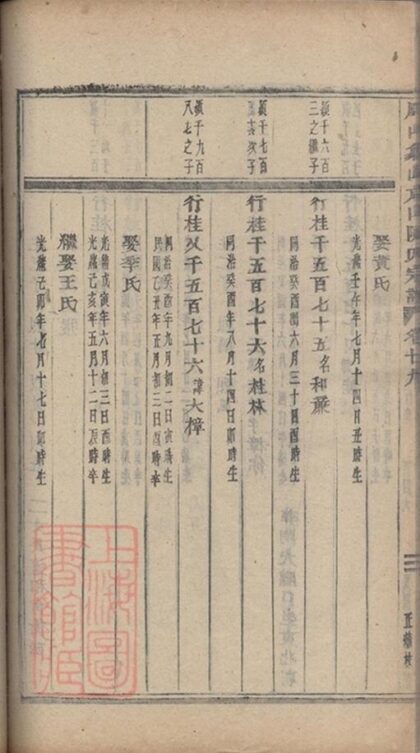 卷十九
娶黃氏
光緒壬午年七月十四日丑時生
三之繼子
行桂千五百七十五名和薰
同治癸酉閏六月三十日酉時生
行桂千五百七十六名桂林
同治癸酉年八月十四日卯時生
八七之子
行桂又千五百七十六諱大樟
同治癸酉年九月初二日寅時生
民國乙丑年正月初三日巳時卒
娶李氏
光緒戊寅年六月初三日酉時生
光緒己亥年五月十二日辰時卒
繼娶王氏
光緒己卯年七月十七日卯時生
上海圖書館藏